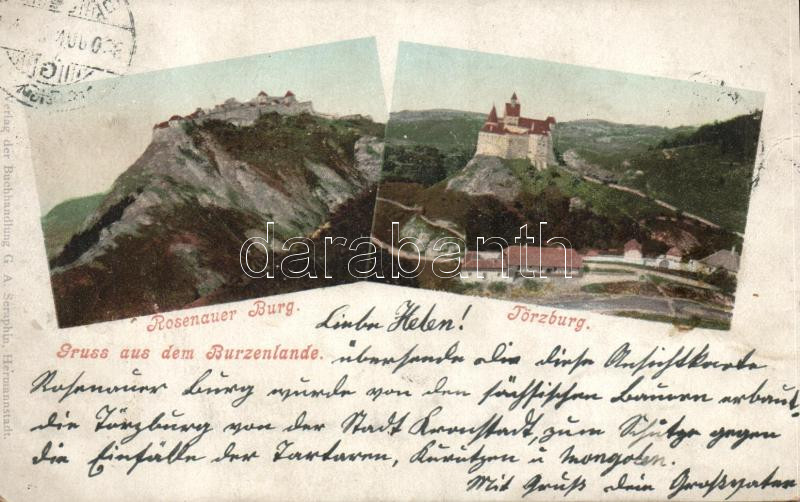 Verlag der Buchhandlung G. A. Seraphin, Hermannstadt.
darabanth
Rosenauer Burg.
Törzburg.
Gruss aus dem Burzenlande.
Liebe Helen!
übersende Dir diese Ansichtkarte
Rosenauer Burg wurde von den sächsischen Bauern erbaut
die Törzburg von der Stadt Kronstadt, zum Schutze gegen
die Einfälle der Tartaren, Kurutzen u Mongolen.
Mit Gruß dein Großvater